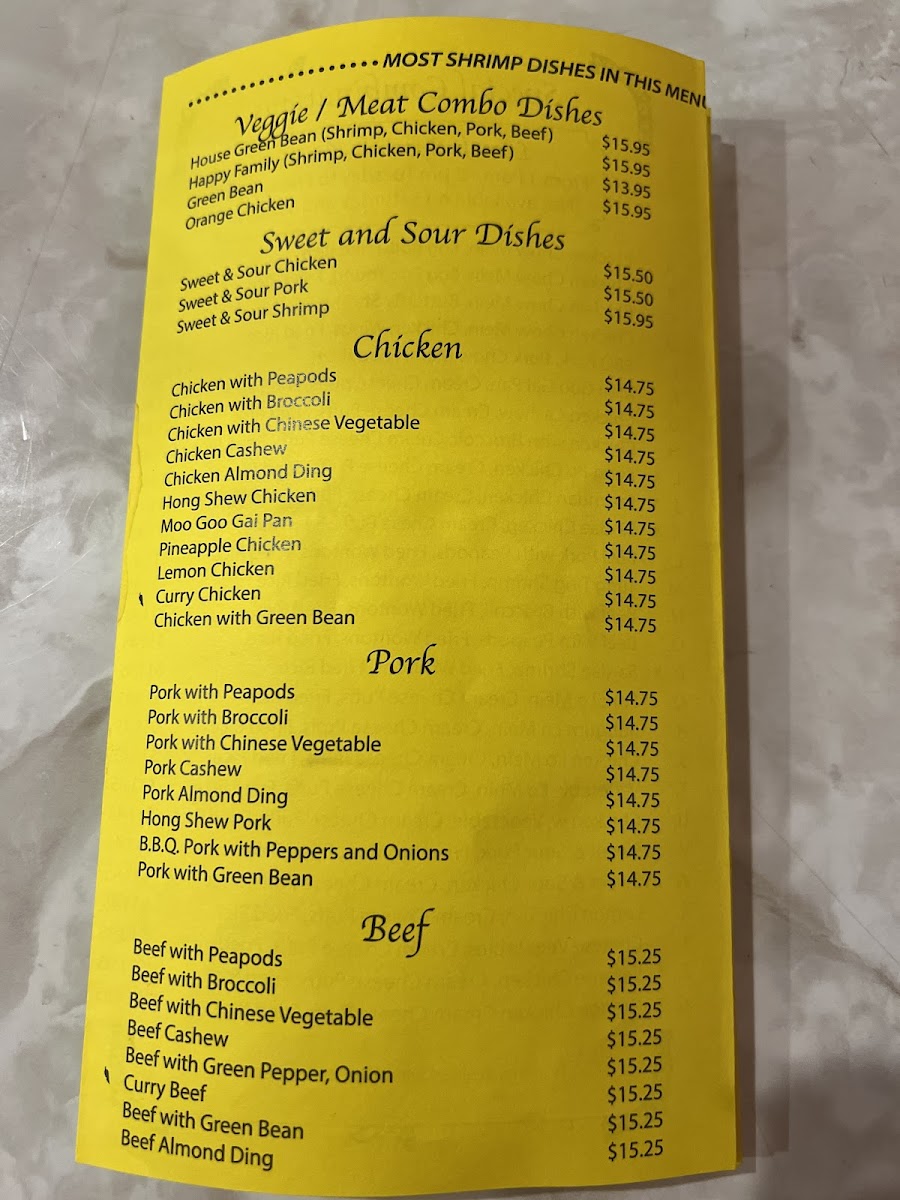 ....................MOST SHRIMP DISHES IN THIS MENU
Veggie / Meat Combo Dishes
House Green Bean (Shrimp, Chicken, Pork, Beef) $15.95
Happy Family (Shrimp, Chicken, Pork, Beef) $15.95
Green Bean $13.95
Orange Chicken $15.95
Sweet and Sour Dishes
Sweet & Sour Chicken $15.50
Sweet & Sour Pork $15.50
Sweet & Sour Shrimp $15.95
Chicken
Chicken with Peapods $14.75
Chicken with Broccoli $14.75
Chicken with Chinese Vegetable $14.75
Chicken Cashew $14.75
Chicken Almond Ding $14.75
Hong Shew Chicken $14.75
Moo Goo Gai Pan $14.75
Pineapple Chicken $14.75
Lemon Chicken $14.75
Curry Chicken $14.75
Chicken with Green Bean $14.75
Pork
Pork with Peapods $14.75
Pork with Broccoli $14.75
Pork with Chinese Vegetable $14.75
Pork Cashew $14.75
Pork Almond Ding $14.75
Hong Shew Pork $14.75
B.B.Q. Pork with Peppers and Onions $14.75
Pork with Green Bean $14.75
Beef
Beef with Peapods $15.25
Beef with Broccoli $15.25
Beef with Chinese Vegetable $15.25
Beef Cashew $15.25
Beef with Green Pepper, Onion $15.25
Curry Beef $15.25
Beef with Green Bean $15.25
Beef Almond Ding $15.25